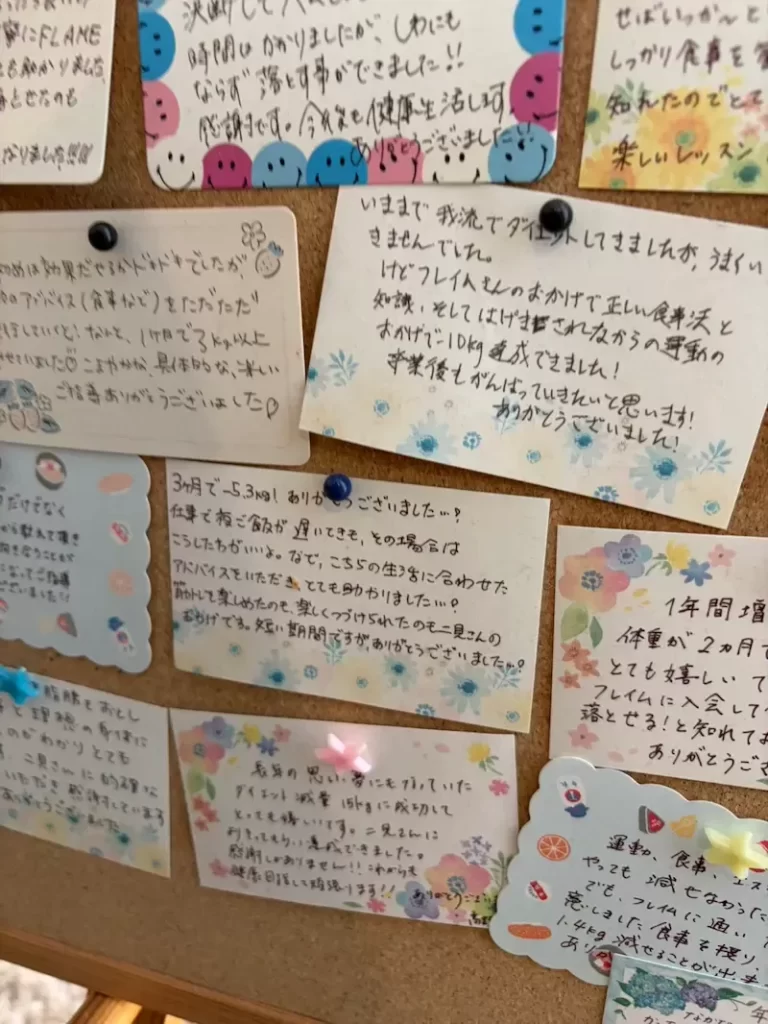 にFLAME
も助かりました
とせたのも
なりました!!!!
時間はかかりましたが、しわにも
ならず落とす事ができました!!
感謝です。今後も健康生活します。
ありがとうございました!!
せばいっか〜と
しっかり食事を
知れたのでとて
楽しいレッスン
じめは効果だせるかドキドキでしたが、
アドバイス(食事など)をただただ
していくと!なんと、1ヶ月で3kg以上
具体的な、楽しい
ご指導ありがとうございました♡
いままで我流でダイエットしてきましたが、うまくい
きませんでした。
けどフレイムさんのおかげで正しい食事法と
知識、そしてはげまされながらの運動の
おかげで-10kg達成できました!
卒業後もがんばっていきたいと思います!
ありがとうございました!
だけでなく
から教えて頂き
向き合うことが
になってご指導
ございました!!
3ヶ月で-5.3kg!ありがとうございました…!
仕事で夜ご飯が遅いときも、その場合は
こうしたわがいいよ。など、こちらの生活に合わせた
アドバイスをいただき、とても助やりました…!
筋トレも楽しめたのも、楽しくつづけられたのも二見さんの
おかげです。短い期間ですが、ありがとうございました…!
1年間増
体重が2カ月で
とても嬉しいで
フレイムに入会して
落とせる!と知れてお
ありがとうご
脂肪をおとし
と理想の身体に
のがわかりとても
二見さんに的確な
いただき感謝しています
ありがとうございました
長年の思い、夢にも思っていた
ダイエット減量15kgに成功して
とっても嬉しいです。二見さんに
達成できました。
感謝しかありません!!これからも
健康目指して頑張ります!!
ありがとうございま
運動、食事、エス
やっても減せなかった
でも、フレイムに通い
食事を摂り、
1.4kg減せることが出来
あり
年